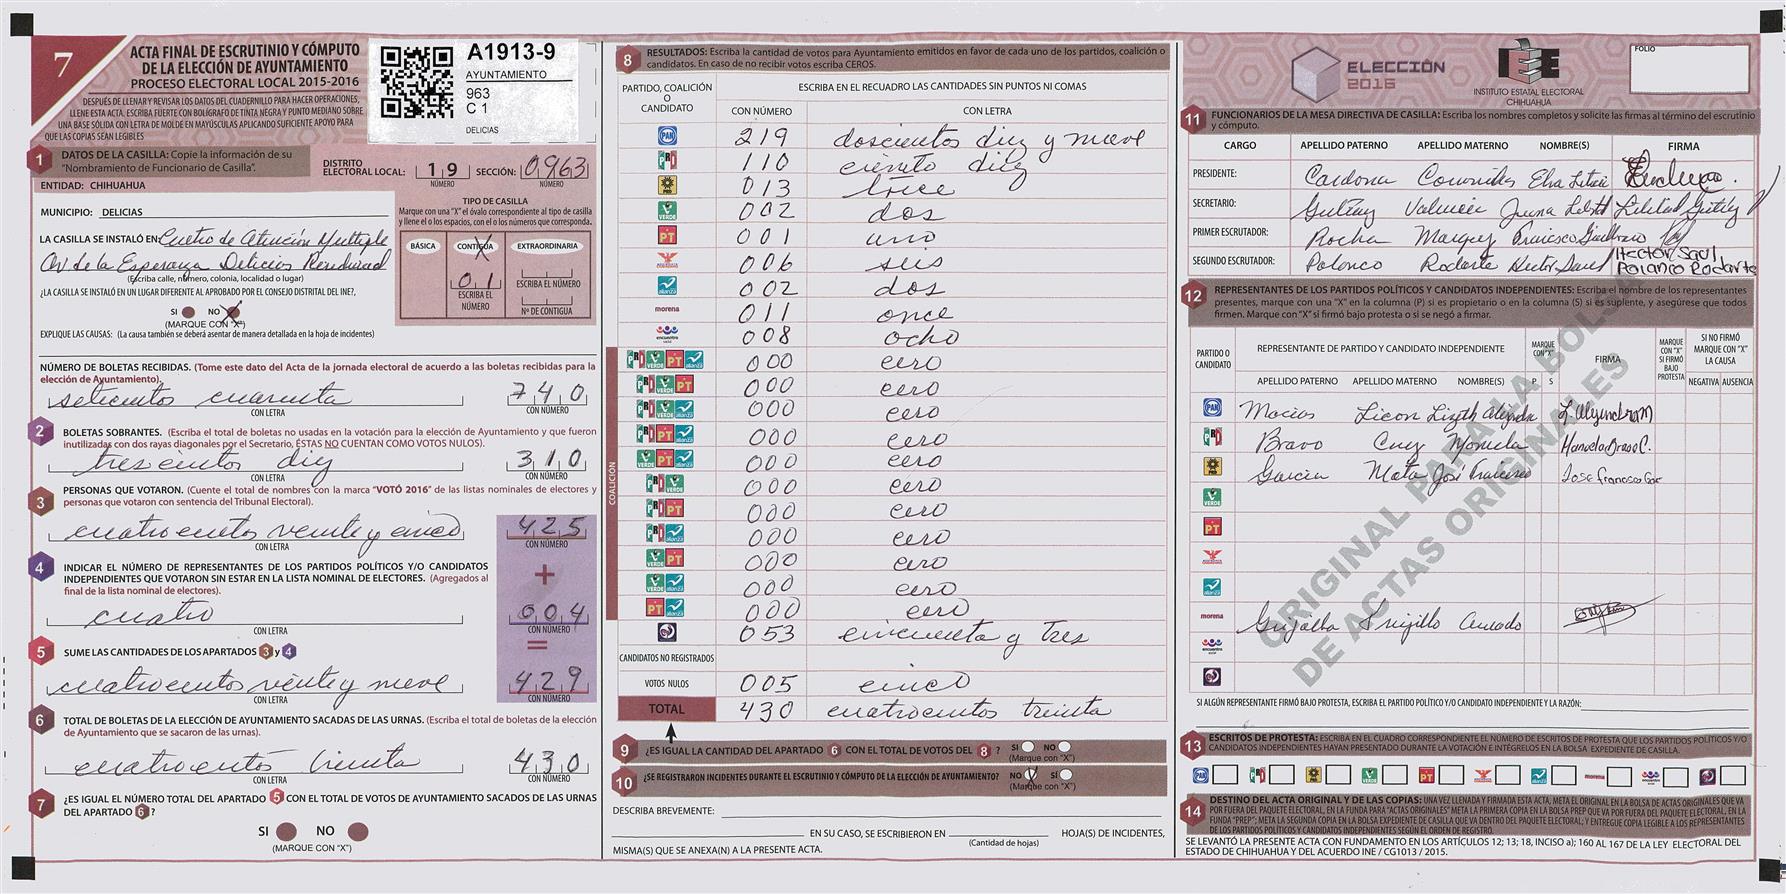 7
ACTA FINAL DE ESCRUTINIO Y CÓMPUTO
DE LA ELECCIÓN DE AYUNTAMIENTO
PROCESO ELECTORAL LOCAL 2015-2016
DESPUÉS DE LLENAR Y REVISAR LOS DATOS DEL CUADERNILLO PARA HACER OPERACIONES,
LLENE ESTA ACTA. ESCRIBA FUERTE CON BOLÍGRAFO DE TINTA NEGRA Y PUNTO MEDIANO SOBRE
UNA BASE SÓLIDA CON LETRA DE MOLDE EN MAYÚSCULAS APLICANDO SUFICIENTE APOYO PARA
QUE LAS COPIAS SEAN LEGIBLES
A1913-9
AYUNTAMIENTO
963
C 1
DELICIAS
1 DATOS DE LA CASILLA: Copie la información de su
"Nombramiento de Funcionario de Casilla".
DISTRITO ELECTORAL LOCAL: 19 NÚMERO SECCIÓN: 0963 NÚMERO
ENTIDAD: CHIHUAHUA
MUNICIPIO: DELICIAS
LA CASILLA SE INSTALÓ EN: Centro de Atención Multiple
Av de la Esperanza Delicias Residencial
(Escriba calle, número, colonia, localidad o lugar)
TIPO DE CASILLA
Marque con una "X" el óvalo correspondiente al tipo de casilla
y llene el o los espacios, con el o los números que corresponda.
BÁSICA CONTIGUA EXTRAORDINARIA
01
ESCRIBA EL NÚMERO
ESCRIBA EL NÚMERO
Nº DE CONTIGUA
¿LA CASILLA SE INSTALÓ EN UN LUGAR DIFERENTE AL APROBADO POR EL CONSEJO DISTRITAL DEL INE?,
SI NO X
(MARQUE CON "X")
EXPLIQUE LAS CAUSAS: (La causa también se deberá asentar de manera detallada en la hoja de incidentes)
NÚMERO DE BOLETAS RECIBIDAS. (Tome este dato del Acta de la jornada electoral de acuerdo a las boletas recibidas para la
elección de Ayuntamiento).
setecientos cuarenta 740
CON LETRA CON NÚMERO
2 BOLETAS SOBRANTES. (Escriba el total de boletas no usadas en la votación para la elección de Ayuntamiento y que fueron
inutilizadas con dos rayas diagonales por el Secretario, ÉSTAS NO CUENTAN COMO VOTOS NULOS).
trescientos diez 310
CON LETRA CON NÚMERO
3 PERSONAS QUE VOTARON. (Cuente el total de nombres con la marca "VOTÓ 2016" de las listas nominales de electores y
personas que votaron con sentencia del Tribunal Electoral).
cuatrocientos veinte y cinco 425
CON LETRA CON NÚMERO
+
4 INDICAR EL NÚMERO DE REPRESENTANTES DE LOS PARTIDOS POLÍTICOS Y/O CANDIDATOS
INDEPENDIENTES QUE VOTARON SIN ESTAR EN LA LISTA NOMINAL DE ELECTORES. (Agregados al
final de la lista nominal de electores).
cuatro 004
CON LETRA CON NÚMERO
=
5 SUME LAS CANTIDADES DE LOS APARTADOS 3 y 4
cuatrocientos veinte y nueve 429
CON LETRA CON NÚMERO
6 TOTAL DE BOLETAS DE LA ELECCIÓN DE AYUNTAMIENTO SACADAS DE LAS URNAS. (Escriba el total de boletas de la elección
de Ayuntamiento que se sacaron de las urnas).
cuatrocientos treinta 430
CON LETRA CON NÚMERO
7 ¿ES IGUAL EL NÚMERO TOTAL DEL APARTADO 5 CON EL TOTAL DE VOTOS DE AYUNTAMIENTO SACADOS DE LAS URNAS
DEL APARTADO 6?
SI NO
(MARQUE CON "X")
8 RESULTADOS: Escriba la cantidad de votos para Ayuntamiento emitidos en favor de cada uno de los partidos, coalición o
candidatos. En caso de no recibir votos escriba CEROS.
PARTIDO, COALICIÓN O CANDIDATO
ESCRIBA EN EL RECUADRO LAS CANTIDADES SIN PUNTOS NI COMAS
CON NÚMERO CON LETRA
PAN 219 doscientos diez y nueve
PRI 110 ciento diez
PRD 013 trece
VERDE 002 dos
PT 001 uno
006 seis
alianza 002 dos
morena 011 once
encuentro social 008 ocho
COALICIÓN
PRI VERDE PT alianza 000 cero
PRI VERDE PT 000 cero
PRI VERDE alianza 000 cero
PRI PT alianza 000 cero
VERDE PT alianza 000 cero
PRI VERDE 000 cero
PRI PT 000 cero
PRI alianza 000 cero
VERDE PT 000 cero
VERDE alianza 000 cero
PT alianza 000 cero
053 cincuenta y tres
CANDIDATOS NO REGISTRADOS
VOTOS NULOS 005 cinco
TOTAL 430 cuatrocientos treinta
9 ¿ES IGUAL LA CANTIDAD DEL APARTADO 6 CON EL TOTAL DE VOTOS DEL 8? SI NO
(Marque con "X")
10 ¿SE REGISTRARON INCIDENTES DURANTE EL ESCRUTINIO Y CÓMPUTO DE LA ELECCIÓN DE AYUNTAMIENTO? NO SI
(Marque con "X")
DESCRIBA BREVEMENTE:
EN SU CASO, SE ESCRIBIERON EN HOJA(S) DE INCIDENTES,
(Cantidad de hojas)
MISMA(S) QUE SE ANEXA(N) A LA PRESENTE ACTA.
ELECCIÓN 2016
IEE
INSTITUTO ESTATAL ELECTORAL
CHIHUAHUA
FOLIO
11 FUNCIONARIOS DE LA MESA DIRECTIVA DE CASILLA: Escriba los nombres completos y solicite las firmas al término del escrutinio
y cómputo.
CARGO APELLIDO PATERNO APELLIDO MATERNO NOMBRE(S) FIRMA
PRESIDENTE: Cardona Elva Leticia
SECRETARIO: Juana
PRIMER ESCRUTADOR: Rocha Marquez Francisco
SEGUNDO ESCRUTADOR: Polanco Rodarte Hector Saul Hector Saul
Polanco Rodarte
12 REPRESENTANTES DE LOS PARTIDOS POLÍTICOS Y CANDIDATOS INDEPENDIENTES: Escriba el nombre de los representantes
presentes, marque con una "X" en la columna (P) si es propietario o en la columna (S) si es suplente, y asegúrese que todos
firmen. Marque con "X" si firmó bajo protesta o si se negó a firmar.
PARTIDO O CANDIDATO
REPRESENTANTE DE PARTIDO Y CANDIDATO INDEPENDIENTE
MARQUE CON "X"
FIRMA
MARQUE CON "X" SI FIRMÓ BAJO PROTESTA
SI NO FIRMÓ MARQUE CON "X" LA CAUSA
APELLIDO PATERNO APELLIDO MATERNO NOMBRE(S) P S NEGATIVA AUSENCIA
PAN Macias Licon Lizeth Alejandra L. Alejandra M
PRI Bravo Cruz Manuela Manuela Bravo C.
PRD Garcia Mata José Francisco Jose Francisco
VERDE
PT
alianza
morena Grijalba Trujillo Amado
encuentro social
SI ALGÚN REPRESENTANTE FIRMÓ BAJO PROTESTA, ESCRIBA EL PARTIDO POLÍTICO Y/O CANDIDATO INDEPENDIENTE Y LA RAZÓN:
13 ESCRITOS DE PROTESTA: ESCRIBA EN EL CUADRO CORRESPONDIENTE EL NÚMERO DE ESCRITOS DE PROTESTA QUE LOS PARTIDOS POLÍTICOS Y/O
CANDIDATOS INDEPENDIENTES HAYAN PRESENTADO DURANTE LA VOTACIÓN E INTÉGRELOS EN LA BOLSA EXPEDIENTE DE CASILLA.
14 DESTINO DEL ACTA ORIGINAL Y DE LAS COPIAS: UNA VEZ LLENADA Y FIRMADA ESTA ACTA, META EL ORIGINAL EN LA BOLSA DE ACTAS ORIGINALES QUE VA
POR FUERA DEL PAQUETE ELECTORAL, EN LA FUNDA PARA "ACTAS ORIGINALES" META LA PRIMERA COPIA EN LA BOLSA PREP QUE VA POR FUERA DEL PAQUETE ELECTORAL, EN LA
FUNDA "PREP"; META LA SEGUNDA COPIA EN LA BOLSA EXPEDIENTE DE CASILLA QUE VA DENTRO DEL PAQUETE ELECTORAL; Y ENTREGUE COPIA LEGIBLE A LOS REPRESENTANTES
DE LOS PARTIDOS POLÍTICOS Y CANDIDATOS INDEPENDIENTES SEGÚN EL ORDEN DE REGISTRO.
SE LEVANTÓ LA PRESENTE ACTA CON FUNDAMENTO EN LOS ARTÍCULOS 12; 13; 18, INCISO a); 160 AL 167 DE LA LEY ELECTORAL DEL
ESTADO DE CHIHUAHUA Y DEL ACUERDO INE / CG1013 / 2015.
ORIGINAL PARA LA BOLSA
DE ACTAS ORIGINALES